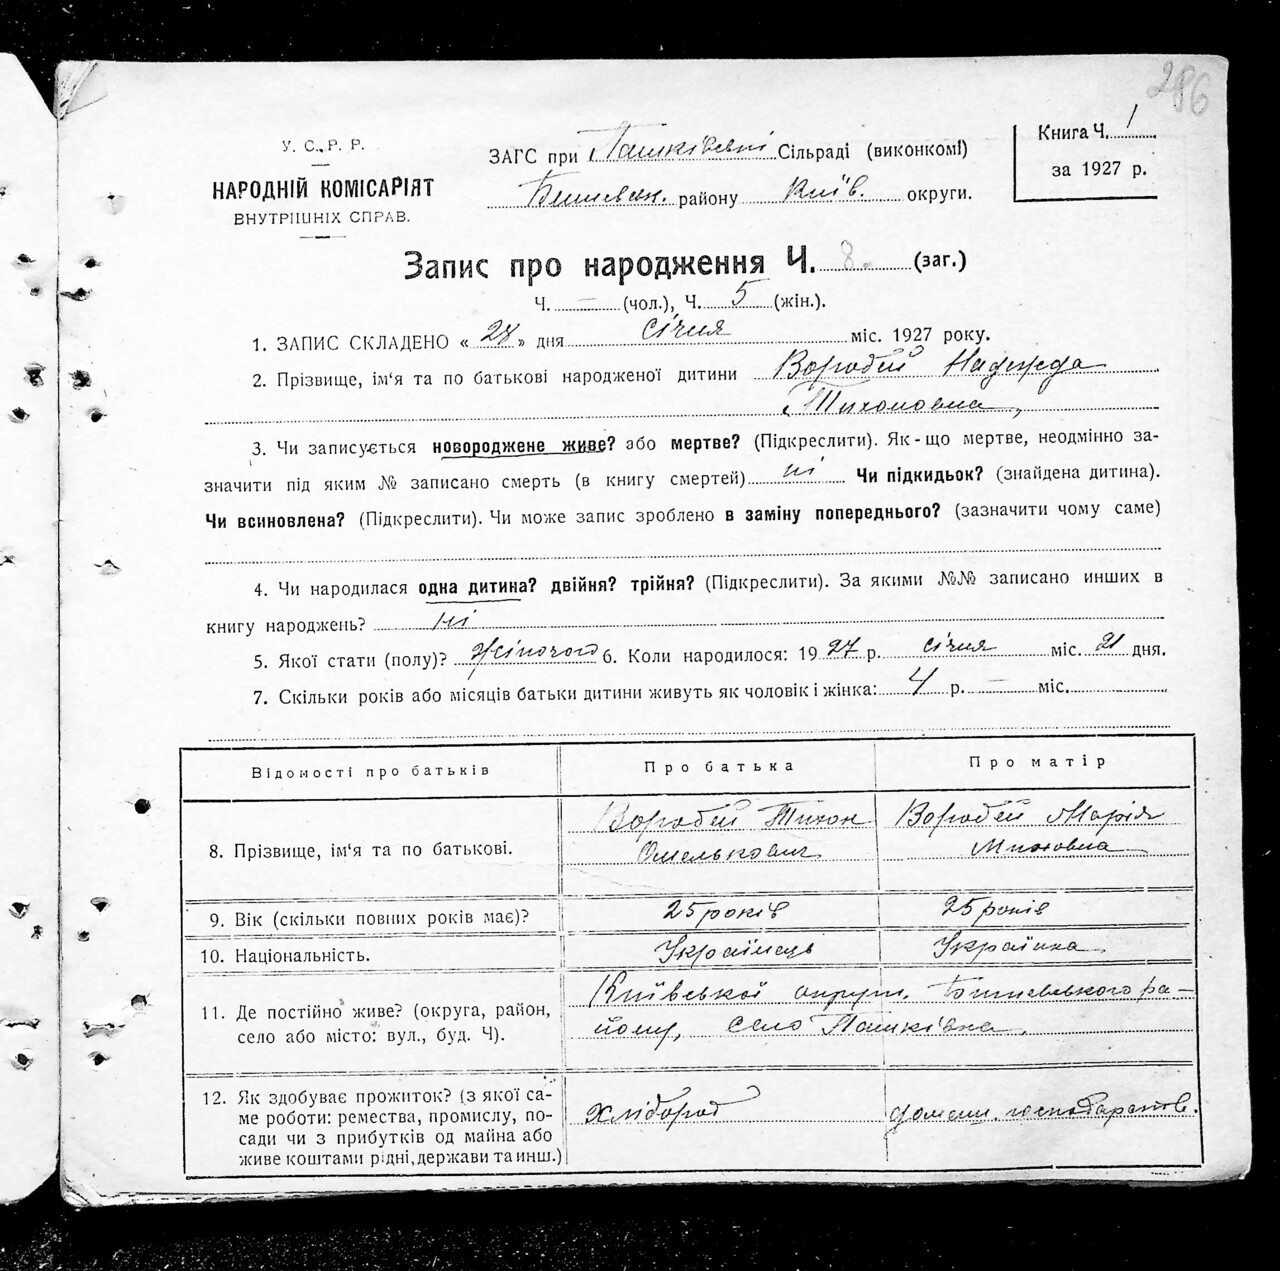 286
У. С. Р. Р.
НАРОДНІЙ КОМІСАРІЯТ
ВНУТРІШНІХ СПРАВ.
ЗАГС при Пашківскі Сільраді (виконкомі)
Бишевск. району Київ. округи.
Книга Ч. 1
за 1927 р.
Запис про народження Ч. 8. (заг.)
Ч. — (чол.), Ч. 5 (жін.).
1. ЗАПИС СКЛАДЕНО « 28 » дня січня міс. 1927 року.
2. Прізвище, ім'я та по батькові народженої дитини Воробей Надежда
Тихоновна,
3. Чи записується новороджене живе? або мертве? (Підкреслити). Як-що мертве, неодмінно за-
значити під яким № записано смерть (в книгу смертей) ні Чи підкидьок? (знайдена дитина).
Чи всиновлена? (Підкреслити). Чи може запис зроблено в заміну попереднього? (зазначити чому саме)
4. Чи народилася одна дитина? двійня? трійня? (Підкреслити). За якими №№ записано инших в
книгу народжень? ні
5. Якої стати (полу)? Жіночого 6. Коли народилося: 1927 р. січня міс. 21 дня.
7. Скільки років або місяців батьки дитини живуть як чоловік і жінка: 4 р. — міс.
Відомості про батьків Про батька Про матір
8. Прізвище, ім'я та по батькові. Воробей Тихон Омелькович Воробей Марія
9. Вік (скільки повних років має)? 25 років 25 років
10. Національність. Українець Українка
11. Де постійно живе? (округа, район,
село або місто: вул., буд. Ч).
Київської округи. Бишевського ра-
йону, село Пашківка.
12. Як здобуває прожиток? (з якої са-
ме роботи: ремества, промислу, по-
сади чи з прибутків од майна або
живе коштами рідні, держави та инш.)
Хлібороб домашн. господарств.